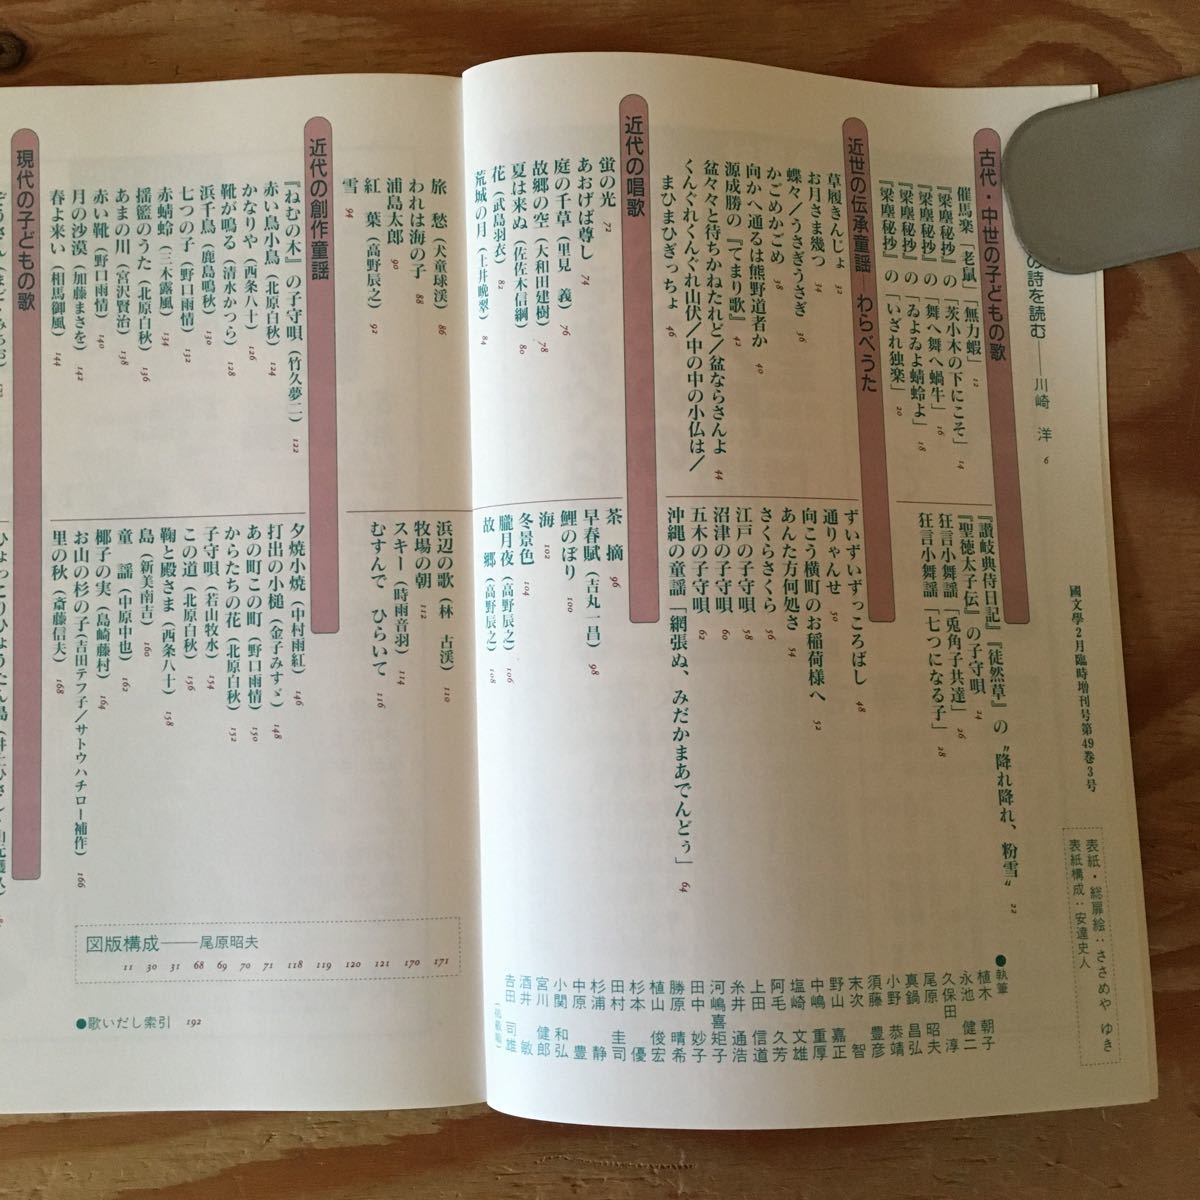 の詩を読む──川崎 洋 6
古代・中世の子どもの歌
催馬楽「老鼠」「無力蝦」 12
『梁塵秘抄』の「茨小木の下にこそ」 14
『梁塵秘抄』の「舞へ舞へ蝸牛」 16
『梁塵秘抄』の「ゐよゐよ蜻蛉よ」 18
『梁塵秘抄』の「いざれ独楽」 20
『讃岐典侍日記』『徒然草』の〝降れ降れ、粉雪〟 22
『聖徳太子伝』の子守唄 24
狂言小舞謡「兎角子共達」 26
狂言小舞謡「七つになる子」 28
近世の伝承童謡──わらべうた
草履きんじょ 32
お月さま幾つ 34
蝶々／うさぎうさぎ 36
かごめかごめ 38
向かへ通るは熊野道者か 40
源成勝の『てまり歌』 42
盆々々と待ちかねたれど／盆ならさんよ 44
くんぐれくんぐれ山伏／中の中の小仏は／
まひまひぎっちょ 46
ずいずいずっころばし 48
通りゃんせ 50
向こう横町のお稲荷様へ 52
あんた方何処さ 54
さくらさくら 56
江戸の子守唄 58
沼津の子守唄 60
五木の子守唄 62
沖縄の童謡「網張ぬ、みだかまあでんどぅ」 64
近代の唱歌
蛍の光 72
あおげば尊し 74
庭の千草（里見 義） 76
故郷の空（大和田建樹） 78
夏は来ぬ（佐佐木信綱） 80
花（武島羽衣） 82
荒城の月（土井晩翠） 84
茶摘 96
早春賦（吉丸一昌） 98
鯉のぼり 100
海 102
冬景色 104
朧月夜（高野辰之） 106
故郷（高野辰之） 108
旅愁（犬童球渓） 86
われは海の子 88
浦島太郎 90
紅葉（高野辰之） 92
雪 94
浜辺の歌（林 古渓） 110
牧場の朝 112
スキー（時雨音羽） 114
むすんで ひらいて 116
近代の創作童謡
『ねむの木』の子守唄（竹久夢二） 122
赤い鳥小鳥（北原白秋） 124
かなりや（西条八十） 126
靴が鳴る（清水かつら） 128
浜千鳥（鹿島鳴秋） 130
七つの子（野口雨情） 132
赤蜻蛉（三木露風） 134
揺籃のうた（北原白秋） 136
あまの川（宮沢賢治） 138
赤い靴（野口雨情） 140
月の沙漠（加藤まさを） 142
春よ来い（相馬御風） 144
夕焼小焼（中村雨紅） 146
打出の小槌（金子みすゞ） 148
あの町この町（野口雨情） 150
からたちの花（北原白秋） 152
子守唄（若山牧水） 154
この道（北原白秋） 156
鞠と殿さま（西条八十） 158
島（新美南吉） 160
童謡（中原中也） 162
椰子の実（島崎藤村） 164
お山の杉の子（吉田テフ子／サトウハチロー補作） 166
里の秋（斎藤信夫） 168
現代の子どもの歌
國文學2月臨時増刊号第49巻3号
表紙・総扉絵：ささめや ゆき
表紙構成：安達史人
●執筆
植木 朝子
永池 健二
久保田 淳
尾原 昭夫
真鍋 昌弘
小野 恭靖
須藤 豊彦
末次 智
野山 嘉正
中嶋 重厚
塩崎 文雄
阿毛 久芳
上田 信道
糸井 通浩
河嶋喜矩子
田中 妙子
勝原 晴希
植山 俊宏
杉本 優
田村 圭司
杉浦 静
中原 豊
小関 和弘
宮川 健郎
酒井 敏
吉田 司雄
（掲載順）
図版構成──尾原昭夫
11 30 31 68 69 70 71 118 119 120 121 170 171
●歌いだし索引 192